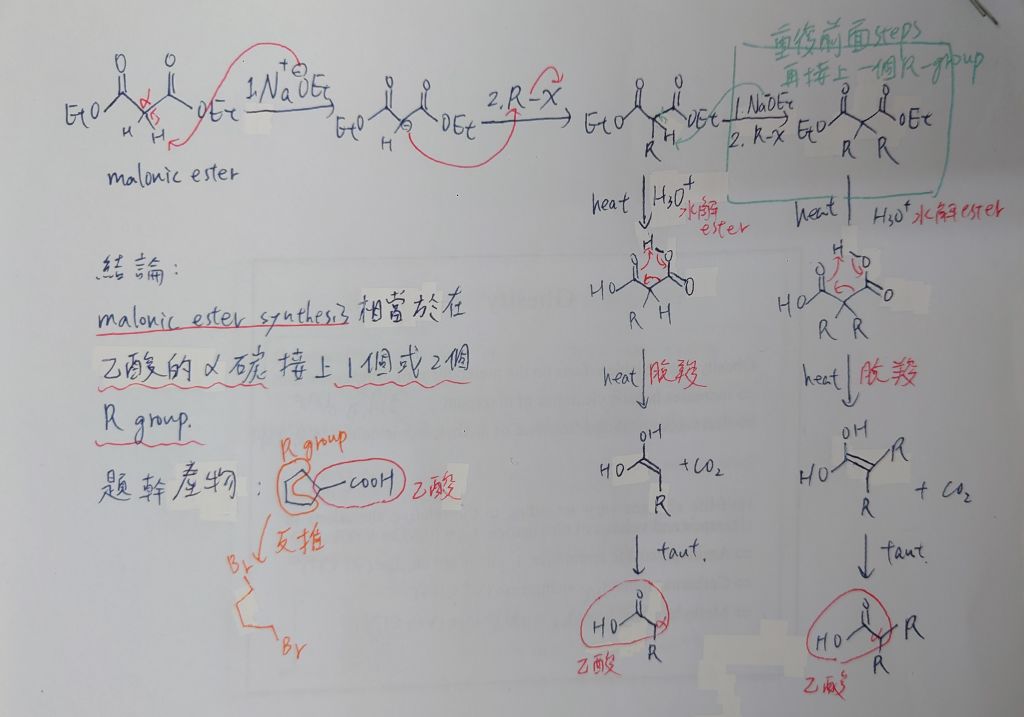 重複前面steps
再接上一個R-group
O O
EtO α OEt
H H
malonic ester
1. Na⁺ ⊖OEt
O O
EtO ⊖ OEt
H
2. R-X
O O
EtO OEt
R H
1. Na⁺⁻OEt
2. R-X
O O
EtO OEt
R R
heat H₃O⁺
水解
ester
heat H₃O⁺ 水解ester
H O
O
HO O
R H
H O
O
HO O
R R
結論:
malonic ester synthesis 相當於在
乙酸的α碳接上1個或2個
R group.
heat 脫羧
heat 脫羧
R group
題幹產物: COOH 乙酸
反推
Br
Br
OH
HO +CO₂
R
OH
HO R
R + CO₂
taut.
taut.
O
HO α
R
乙酸
O
HO R
R
乙酸